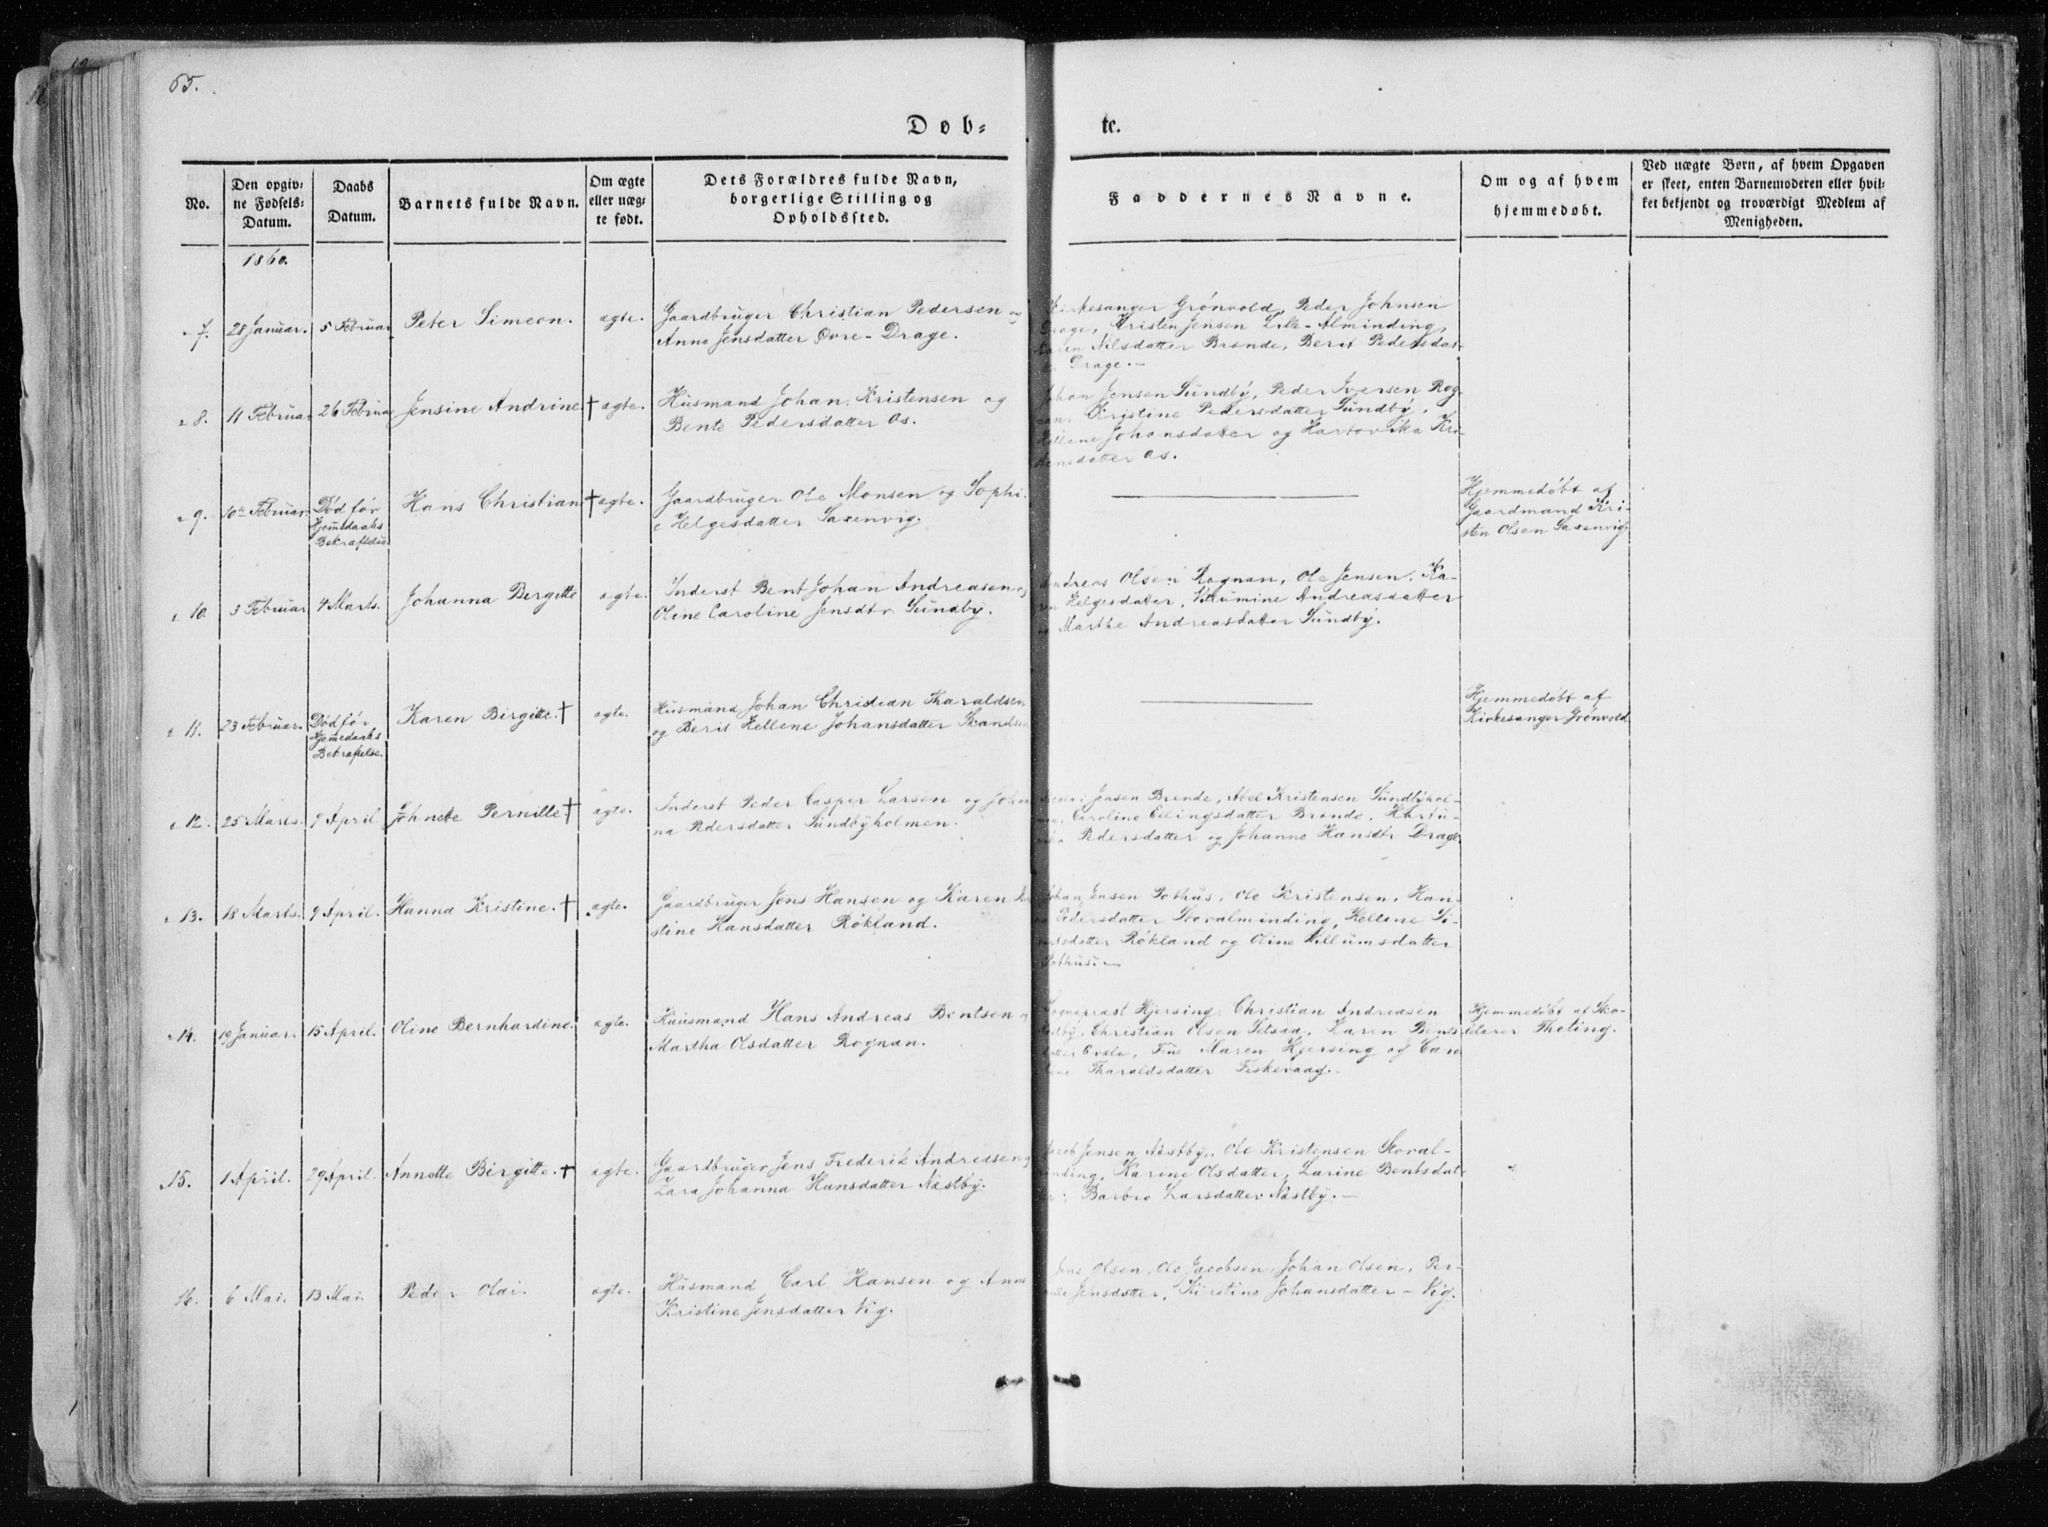 65.
Døb-
te.
No.
Den opgiv-
ne Fødsels-
Datum.
Daabs
Datum.
Barnets fulde Navn.
Om ægte
eller uæg-
te født.
Dets Forældres fulde Navn,
borgerlige Stilling og
Opholdssted.
Faddernes Navne.
Om og af hvem
hjemmedøbt.
Ved uægte Børn, af hvem Opgaven
er skeet, enten Barnemoderen eller hvil-
ket bekjendt og troværdigt Medlem af
Menigheden.
1860.
7.
28 Januar.
5 Februar
Peter Simeon.
ægte.
Gaardbruger Christian Pedersen og
Anne Jensdatter Øvre-Drage.
Kirkesanger Grønvold, Peder Johnsen
Drage, Kristen Jensen Lille-Alminding,
Karen Nilsdatter Brænde, Berit Pedersdat-
Drage.-
8.
11 Februar
26 Februar
Jensine Andrine †
ægte.
Husmand Johan Kristensen og
Bente Pedersdatter Os.
Johan Jensen Sundby, Peder Iversen Rog-
nan, Kristine Pedersdatter Sundby,
Hellene Johansdatter og Hartovika Kri-
stensdatter Os.
9.
10de Februar
Død før
Hjemedaabs
Bekræftelse
Hans Christian †
ægte.
Gaardbruger Ole Monsen og Sophi-
e Helgesdatter Saxenvig.
Hjemmedøbt af
Gaardmand Kri-
sten Olsen Saxenvig.
10.
3 Februar
4 Marts.
Johanna Birgitte
ægte.
Inderst Bent Johan Andreasen og
Oline Caroline Jensdtr Sundby.
Andreas Olsen Rognan, Ole Jensen, Ka-
ren Helgesdatter, Andreasdatter
og Marthe Andreasdatter Sundby.
11.
23 Februar.
Død før
Hjemedaabs
Bekræftelse.
Karen Birgitte. †
ægte.
Husmand Johan Christian Tharaldsen
og Berit Hellene Johansdatter
Hjemmedøbt af
Kirkesanger Grønvold
12.
25 Marts.
9 April
Johnete Pernille †
ægte.
Inderst Peder Casper Larsen og Johan
na Pedersdatter Sundbyholmen.
Jensen Brænde, Abel Kristensen Sundbyhol-
men, Caroline Ellingsdatter Brænde,
Pedersdatter og Johanne Hansdtr Drage
13.
18 Marts.
9 April.
Hanna Kristine. †
ægte.
Gaardbruger Jens Hansen og Karen Kri
stine Hansdatter Røkland.
Johan Jensen Pothus, Ole Kristensen, Han-
Pedersdatter Storalminding, Hellene Si-
vertsdatter Røkland og Oline Villumsdatter
Pothus.-
14.
19 Januar.
15 April.
Oline Bernhardine.
ægte.
Huusmand Hans Andreas Bentsen og
Martha Olsdatter Rognan.
Sogneprest Hjersing, Christian Andreasen
Næstby, Christian Olsen Karen Bents
datter Fru Maren Hjersing og Caro
line Tharaldsdatter Fiskevaag.-
Hjemmedøbt af Sko-
lelærer Theting.
15.
1 April.
29 April.
Annette Birgitte. †
ægte.
Gaardbruger Jens Frederik Andreasen og
Zara Johanna Hansdatter Næstby.
Jacob Jensen Næstby, Ole Kristensen Storal-
minding, Karine Olsdatter, Larine Bentsdat-
ter, Barbro Larsdatter Næstby.-
16.
6 Mai.
13 Mai.
Peder Olai.
ægte.
Husmand Carl Hansen og Anne
Kristine Jensdatter Vig.
Jens Olsen, Ole Jacobsen, Johan Olsen, Per-
nille Jensdatter, Kirstine Johansdatter - Vig.